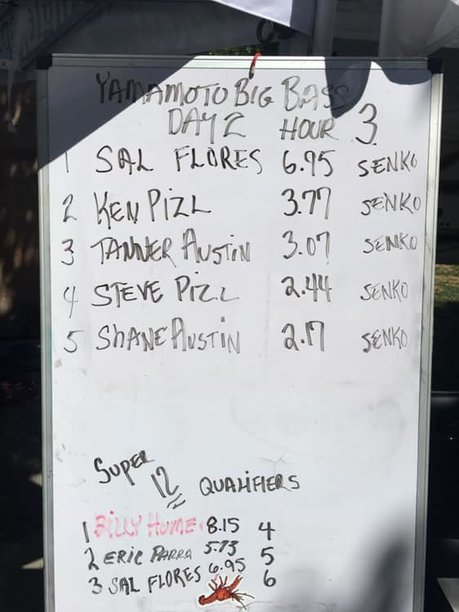 YAMAMOTO BIG BASS
DAY 2 HOUR 3
1 SAL FLORES 6.95 SENKO
2 KEN PIZL 3.77 SENKO
3 TANNER AUSTIN 3.07 SENKO
4 STEVE PIZL 2.44 SENKO
5 SHANE AUSTIN 2.17 SENKO
SUPER 12 = QUALIFIERS
1 BILLY HUME 8.15 4
2 ERIC PARRA 5.73 5
3 SAL FLORES 6.95 6